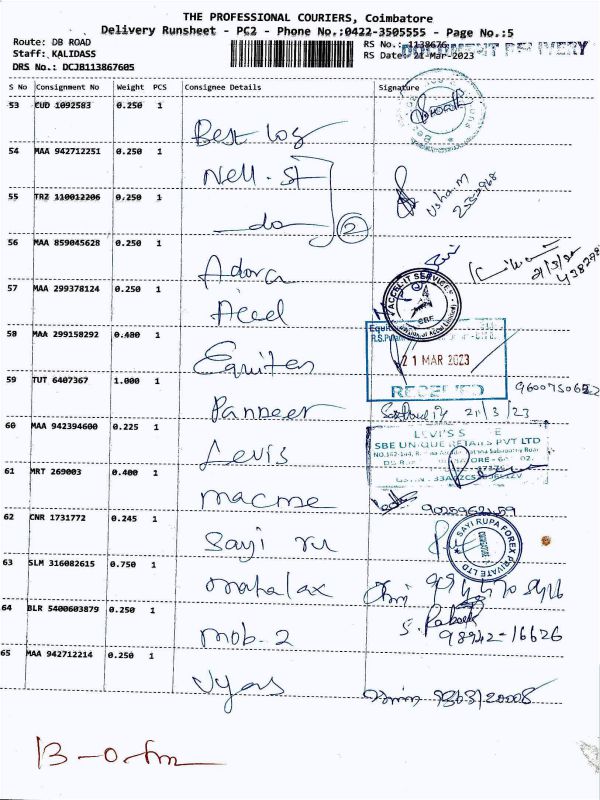 THE PROFESSIONAL COURIERS, Coimbatore
Delivery Runsheet - PC2 - Phone No.:0422-3505555 - Page No.:5
Route: DB ROAD
Staff: KALIDASS
DRS No.: DCJB113867605
RS No.: 1138676
DOCUMENT DELIVERY
RS Date: 21-Mar-2023
S No Consignment No Weight PCS Consignee Details Signature
53 CUD 1092583 0.250 1
Best log
54 MAA 942712251 0.250 1
Nell. St
Usha.m
55 TRZ 110012206 0.250 1
do 2
56 MAA 859045628 0.250 1
Adora
21/3/23
57 MAA 299378124 0.250 1
Accel
ACCEL IT SERVICES
CBE
58 MAA 299158292 0.480 1
Equitas
R.S.Puram
21 MAR 2023
RECEIVED
59 TUT 6407367 1.000 1
9600750652
Panneer
21/3/23
60 MAA 942394600 0.225 1
Levis
LEVI'S S E
SBE UNIQUE RETAILS PVT LTD
61 MRT 269003 0.400 1
macme
9025962159
62 CNR 1731772 0.245 1
Sayi ru
SAYI RUPA FOREX PRIVATE LTD
63 SLM 316082615 0.750 1
mahalax
64 BLR 5400603879 0.250 1
mob-2
98942-16626
65 MAA 942712214 0.250 1
Vyas
13-0-fm